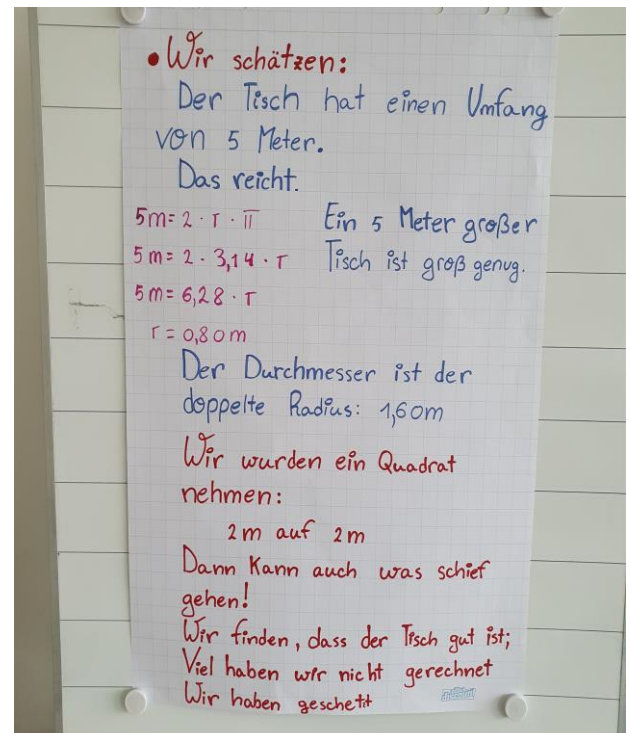 • Wir schätzen:
Der Tisch hat einen Umfang
von 5 Meter.
Das reicht.
5m = 2 · r · π
5m = 2 · 3,14 · r
5m = 6,28 · r
r = 0,80m
Ein 5 Meter großer
Tisch ist groß genug.
Der Durchmesser ist der
doppelte Radius: 1,60m
Wir wurden ein Quadrat
nehmen:
2m auf 2m
Dann Kann auch was schief
gehen!
Wir finden, dass der Tisch gut ist;
Viel haben wir nicht gerechnet
Wir haben geschett